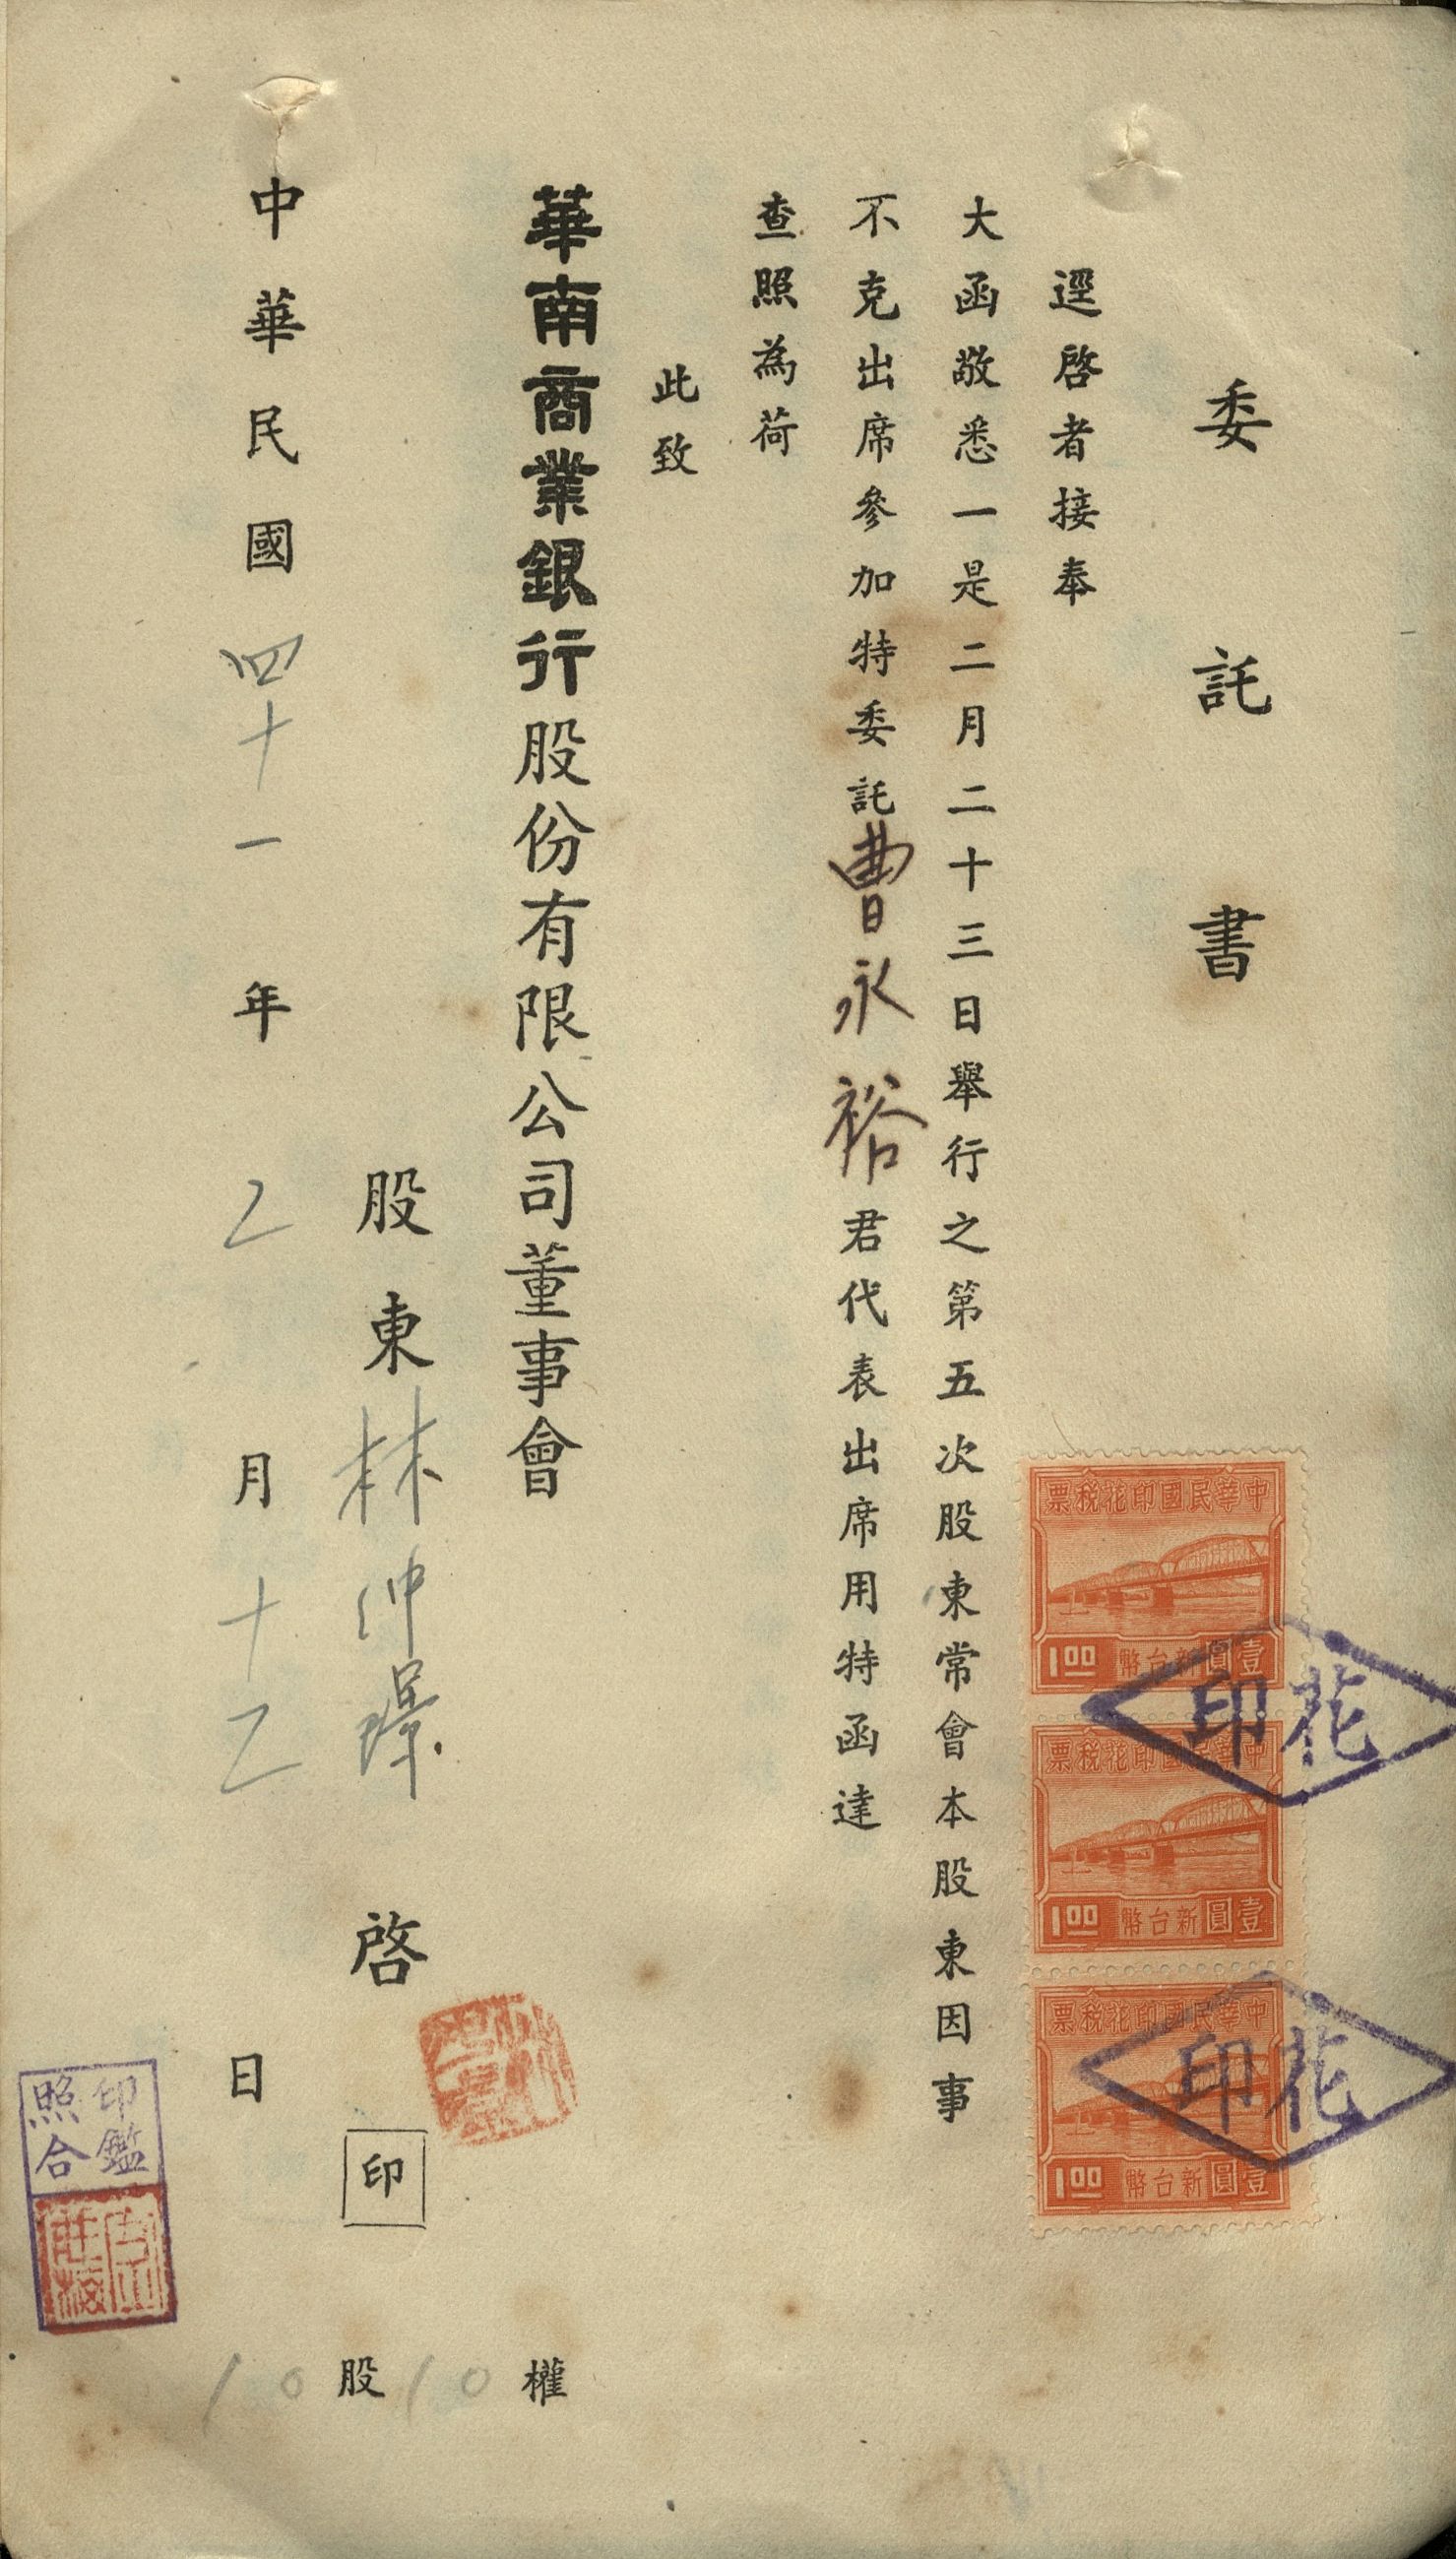 委託書
逕啓者接奉
大函敬悉一是二月二十三日舉行之第五次股東常會本股東因事
不克出席參加特委託曹永裕君代表出席用特函達
查照為荷
此致
華南商業銀行股份有限公司董事會
股東林仲 啓
印
中華民國四十一年乙月十乙日
10股10權
中華民國印花稅票
壹圓新台幣
1.00
中華民國印花稅票
壹圓新台幣
1.00
中華民國印花稅票
壹圓新台幣
1.00
花印
花印
印鑑
照合